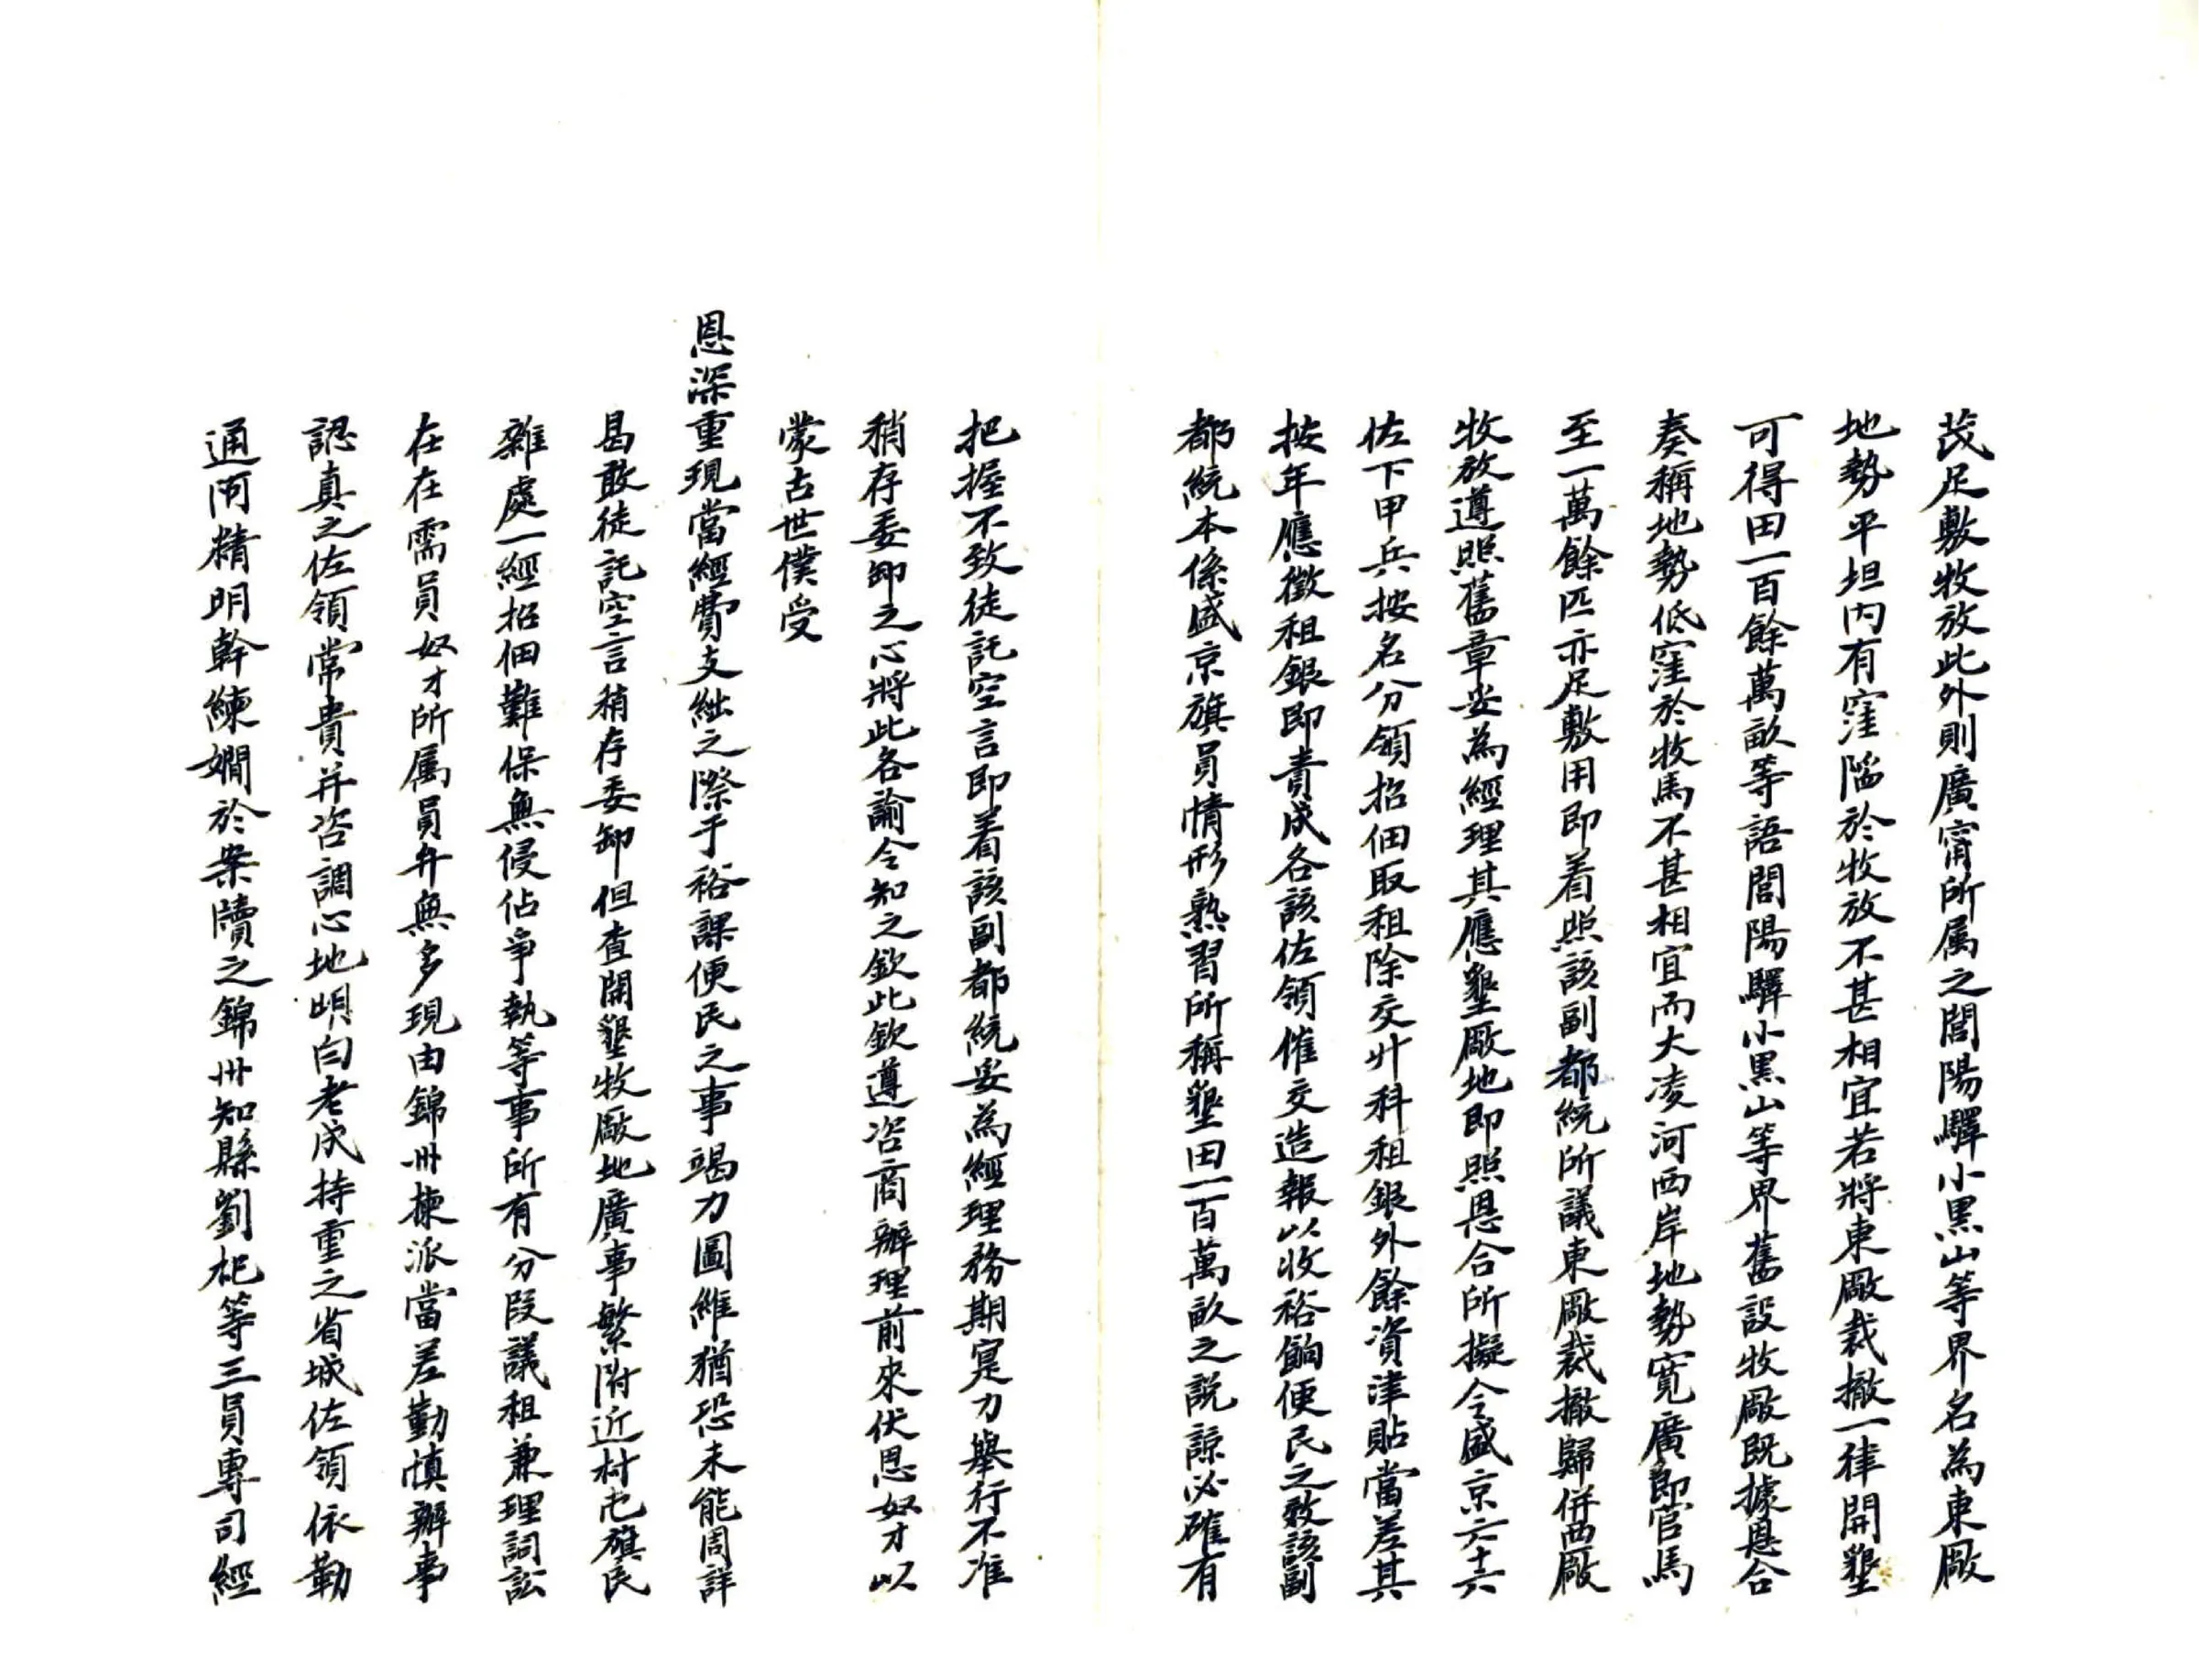 茂足敷牧放此外則廣甯所属之閭陽驛小黒山等界名為東廠
地勢平坦内有窪陷於牧放不甚相宜若將東廠裁撤一律開墾
可得田一百餘萬畝等語閭陽驛小黒山等界舊設牧廠既據恩合
奏稱地勢低窪於牧馬不甚相宜而大凌河西岸地勢寬廣即官馬
至一萬餘匹亦足敷用即着照該副都統所議東廠裁撤歸併西廠
牧放遵照舊章妥為經理其應墾廠地即照恩合所擬令盛京六十六
佐下甲兵按名分領招佃取租除交廾科租銀外餘資津貼當差其
按年應徵租銀即責成各該佐領催交造報以收裕餉便民之效該副
都統本係盛京旗員情形熟習所稱墾田一百萬畝之説諒必確有
把握不致徒託空言即着該副都統妥為經理務期寔力舉行不准
稍存委卸之心將此各諭令知之欽此欽遵咨商辦理前來伏思奴才以
蒙古世僕受
恩深重現當經費支絀之際于裕課便民之事竭力圖維猶恐未能周詳
曷敢徒託空言稍存委卸但查開墾牧廠地廣事繁附近村屯旗民
雜處一經招佃難保無侵佔爭執等事所有分段議租兼理詞訟
在在需員奴才所属員弁無多現由錦州揀派當差勤慎辦事
認真之佐領常貴并咨調心地明白老成持重之省城佐領依勒
通阿精明幹練嫺於案牘之錦州知縣劉杞等三員專司經